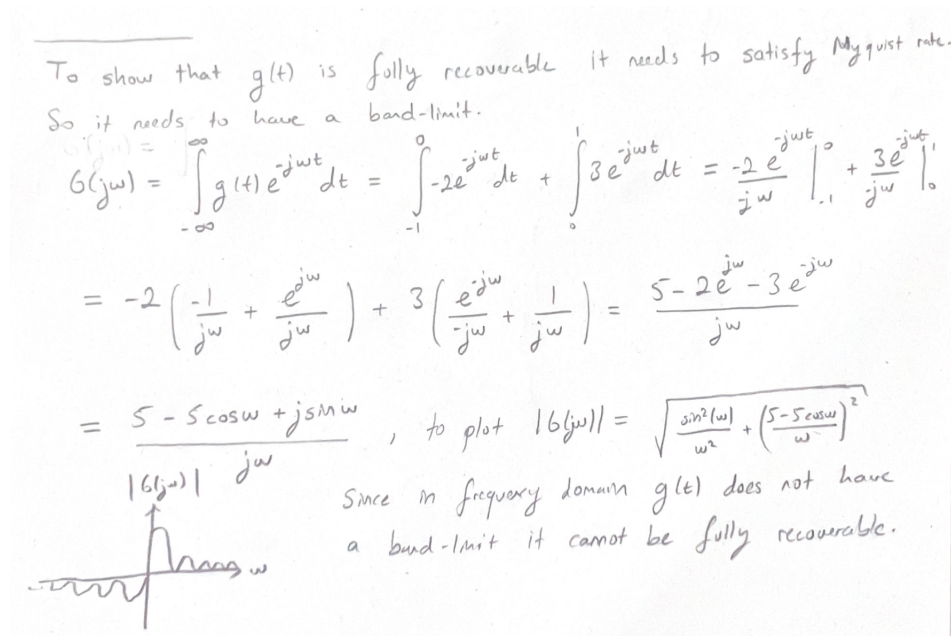 To show that g(t) is fully recoverable it needs to satisfy Nyquist rate.
So it needs to have a band-limit.
G(jw) = ∫_{-∞}^{∞} g(t) e^{-jwt} dt = ∫_{-1}^{0} -2e^{-jwt} dt + ∫_{0}^{1} 3e^{-jwt} dt = -2 e^{-jwt}/-jw |_{-1}^{0} + 3e^{-jwt}/-jw |_{0}^{1}
= -2 ( -1/jw + e^{jw}/jw ) + 3 ( e^{-jw}/-jw + 1/jw ) = (5 - 2e^{jw} - 3e^{-jw})/jw
= (5 - 5cosw + jsinw)/jw , to plot |G(jw)| = √( sin²(w)/w² + ((5-5cosw)/w)² )
|G(jw)|
Since in frequency domain g(t) does not have
a band-limit it cannot be fully recoverable.
w